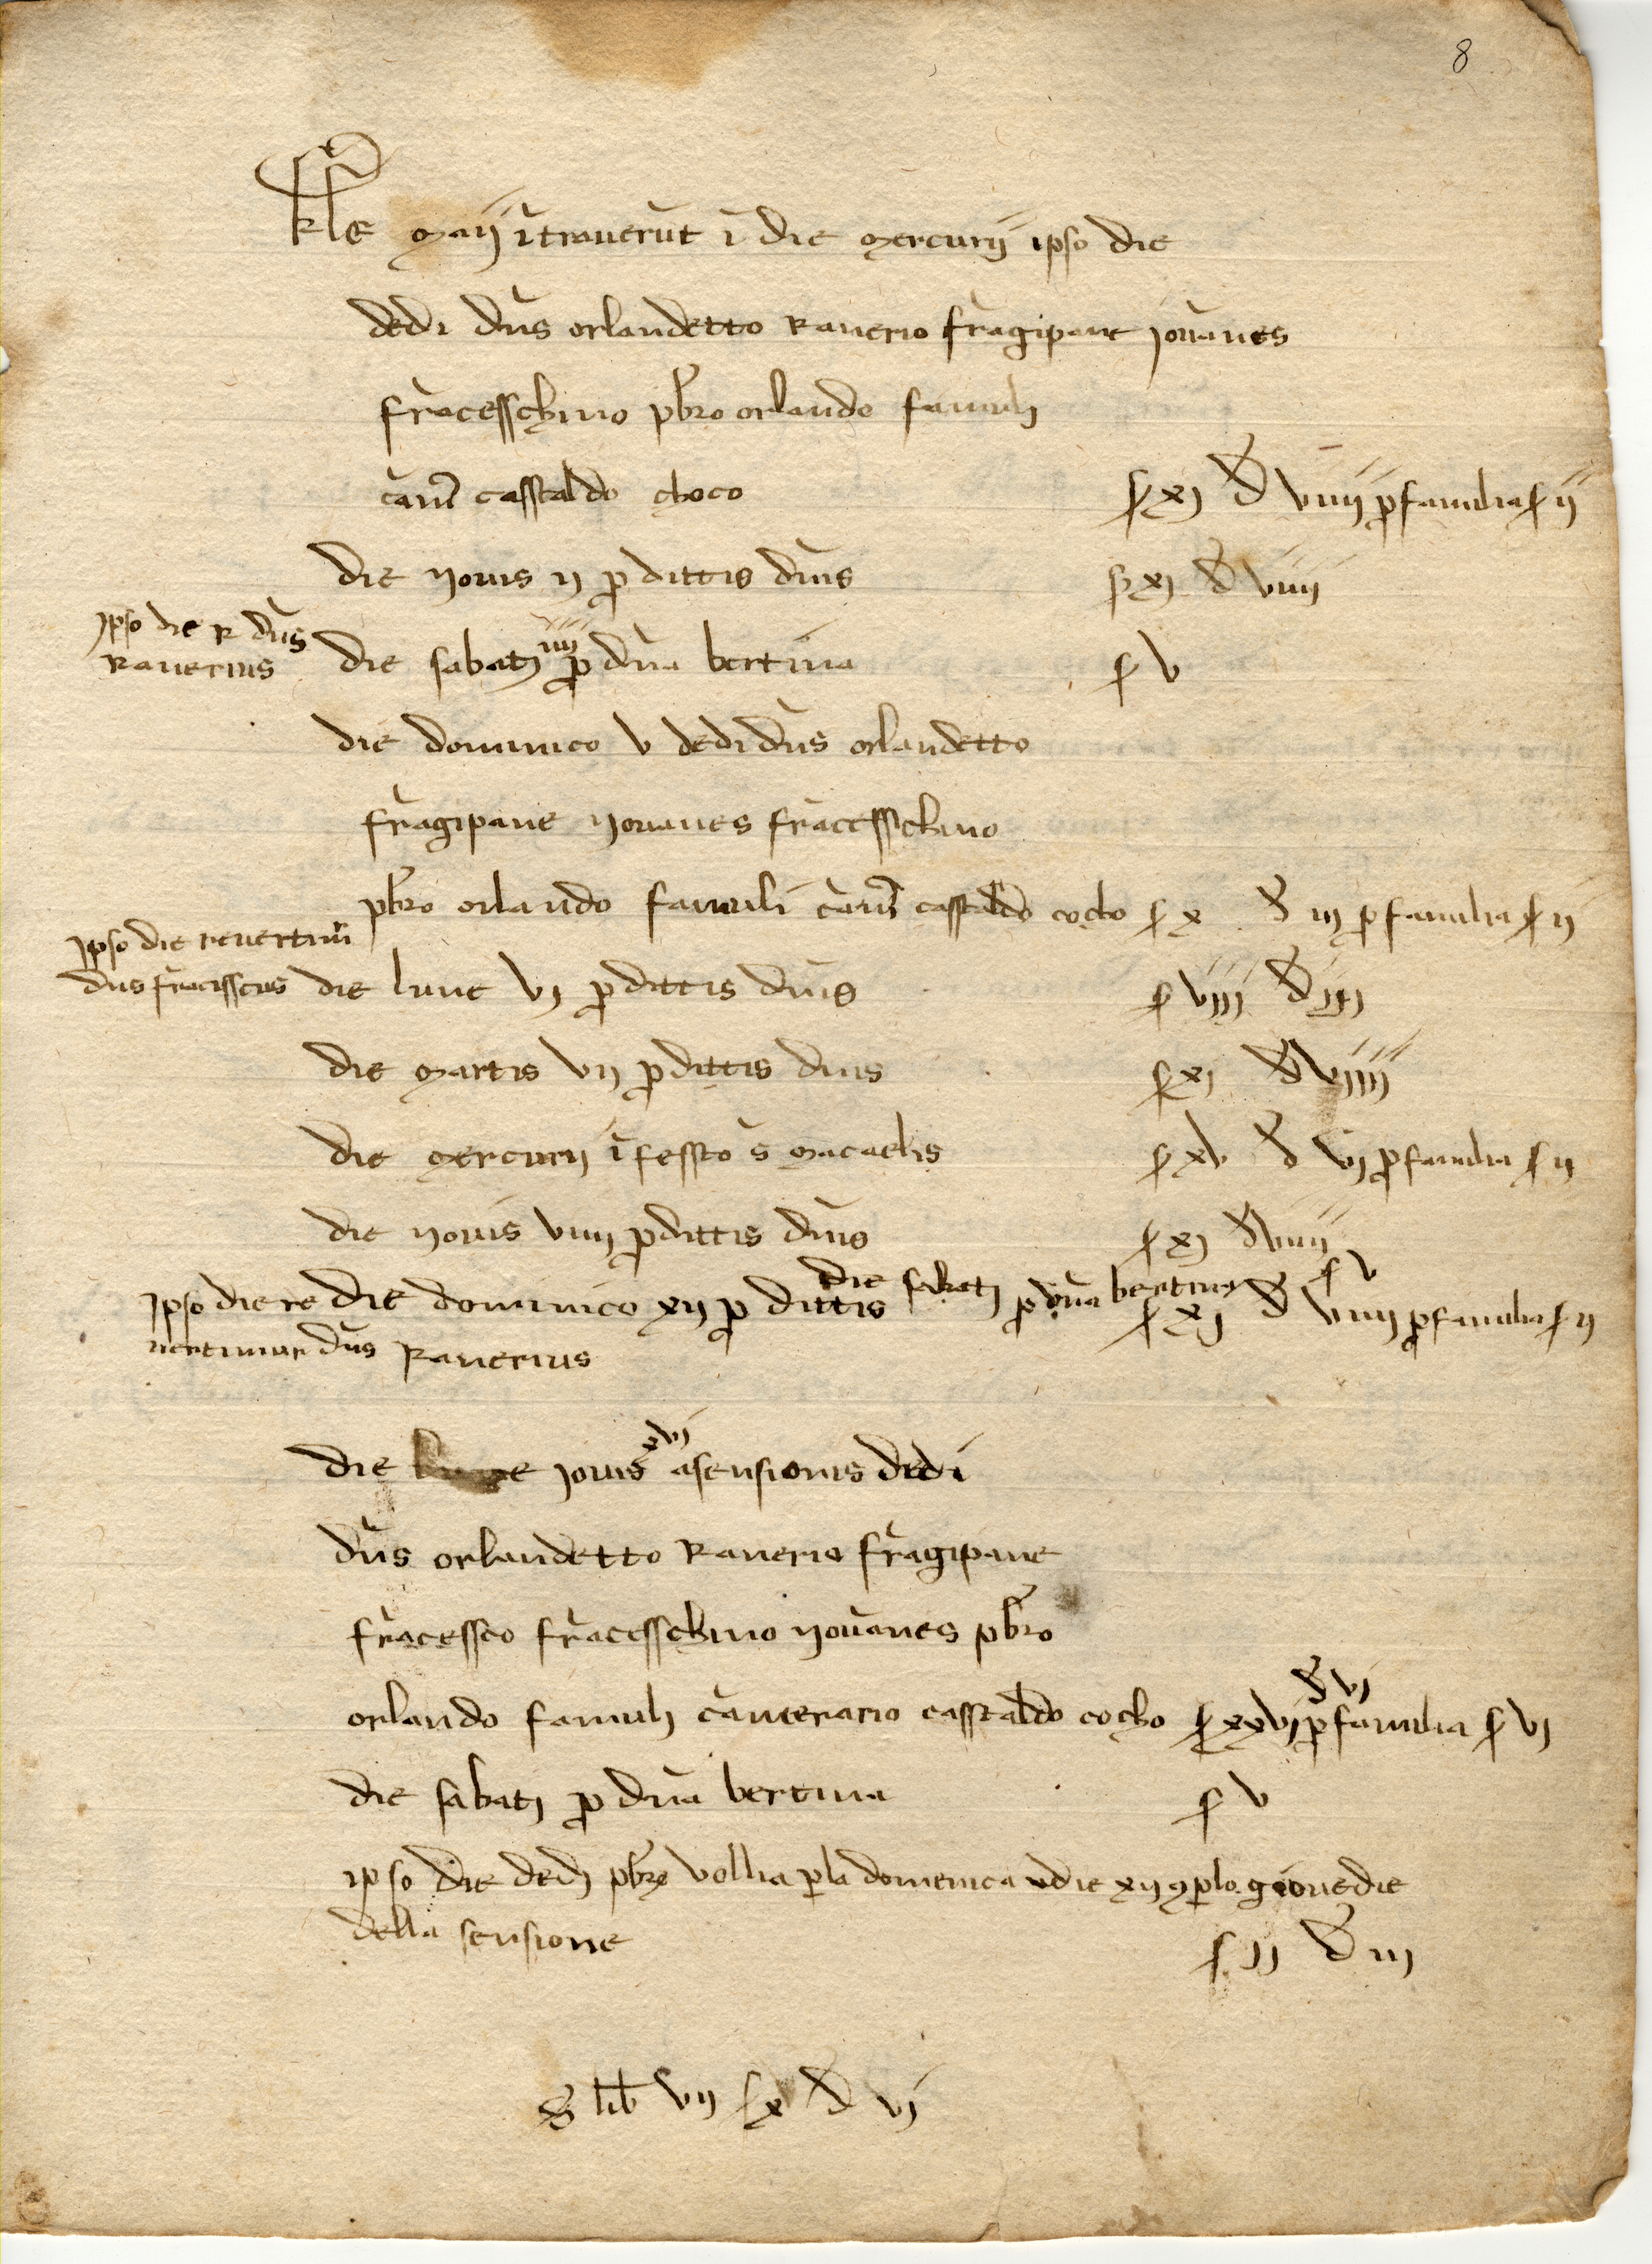 8
kl'e maij ītraverūt ī die mercurij ipso die
dedi dn̄s orlandetto Ranerio frāgipane jovānes
frācesschino pb̄ro orlando famuli
cam̄ casstaldo choco ſ xj d viiij p familia ſ ij
die yovis ij p dittis dn̄is ſ xj d viiij
ipso die R dn̄s
Ranerius
die sabati iiij p dn̄a bertina ſ v
die dominico v dedi dn̄s orlandetto
frāgipane yovanes frācesschino
pb̄ro orlando famuli cam̄ casstaldo cocho ſ x d iij p familia ſ ij
ipso die revertim̄
dn̄s frācisscus
die lune vj p dittis dn̄is ſ viij d iij
die martis vij p dittis dn̄is ſ xj d viiij
die mercurij ī fessto s̄ macaelis ſ xv d vj p familia ſ ij
die yovis viiij p dittis dn̄is ſ xj d viiij
die sabati p dn̄a bertina ſ v
ipso die re die dominico xij p dittis ſ xj d viiij p familia ſ ij
vertimur dn̄s Ranerius
die jovis xvj asensionis dedi
dn̄s orlandetto Ranerio frāgipane
frācessco frācesschino yovānes pb̄ro
orlando famuli camerario casstaldo cocho ſ xxvj d vj p familia ſ vj
die sabati p dn̄a bertina ſ v
ipso die dedi pb̄ro vollia p la domenica die xij p lo giovedie
della sensione ſ ij d iij
S lib vij ſ x d vj